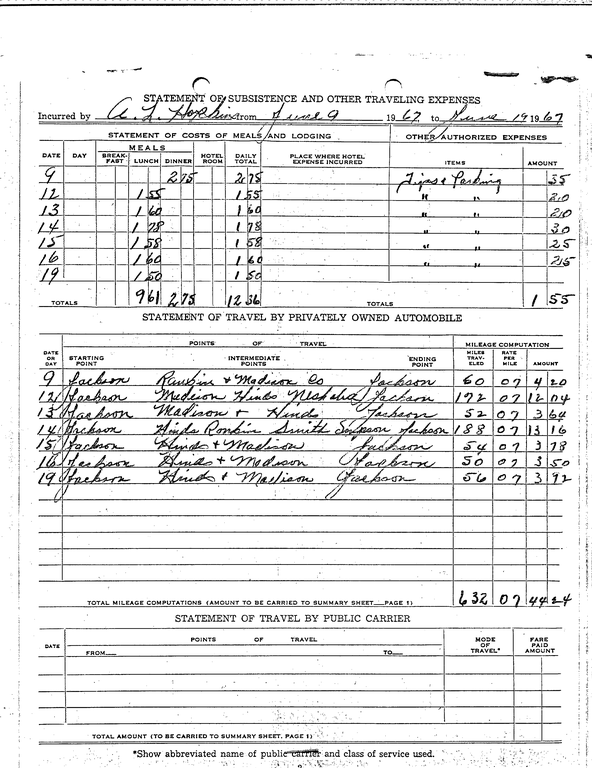 STATEMENT OF SUBSISTENCE AND OTHER TRAVELING EXPENSES
Incurred by A. L. Hopkins from June 9 1967 to June 19 1967
STATEMENT OF COSTS OF MEALS AND LODGING OTHER AUTHORIZED EXPENSES
DATE DAY MEALS HOTEL ROOM DAILY TOTAL PLACE WHERE HOTEL EXPENSE INCURRED ITEMS AMOUNT
BREAK-FAST LUNCH DINNER
9 2 75 2 75 Tips & Parking 35
12 1 55 1 55 " " 20
13 1 60 1 60 " " 20
14 1 78 1 78 " " 30
15 1 58 1 58 " " 25
16 1 60 1 60 " " 25
19 1 50 1 50
TOTALS 9 61 2 75 12 36 TOTALS 1 55
STATEMENT OF TRAVEL BY PRIVATELY OWNED AUTOMOBILE
POINTS OF TRAVEL MILEAGE COMPUTATION
DATE OR DAY STARTING POINT INTERMEDIATE POINTS ENDING POINT MILES TRAV-ELED RATE PER MILE AMOUNT
9 Jackson Rankin & Madison Co Jackson 60 07 4 20
12 Jackson Madison Hinds Jackson 172 07 12 04
13 Jackson Madison + Hinds Jackson 52 07 3 64
14 Jackson Hinds Rankin Smith Simpson Jackson 188 07 13 16
15 Jackson Hinds + Madison Jackson 54 07 3 78
16 Jackson Hinds + Madison Jackson 50 07 3 50
19 Jackson Hinds & Madison Jackson 56 07 3 92
TOTAL MILEAGE COMPUTATIONS (AMOUNT TO BE CARRIED TO SUMMARY SHEET__PAGE 1) 632 07 44 24
STATEMENT OF TRAVEL BY PUBLIC CARRIER
DATE POINTS OF TRAVEL MODE OF TRAVEL* FARE PAID AMOUNT
FROM__ TO__
TOTAL AMOUNT (TO BE CARRIED TO SUMMARY SHEET, PAGE 1)
*Show abbreviated name of public carrier and class of service used.